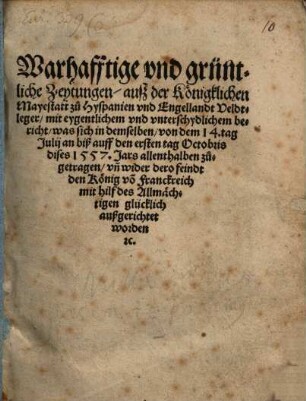 10
Warhafftige vnd grünt-
liche Zeytungen / auß der Königklichen
Mayestatt zů Hyspanien vnd Engellandt Veldt-
leger / mit eygentlichem vnd vnterschydlichem be-
richt / was sich in demselben / von dem 14. tag
Julij an biß auff den ersten tag Octobris
dises 1557. Jars allenthalben zů-
getragen / vñ wider dero feindt
den König võ Franckreich
mit hilf des Allmäch-
tigen glücklich
außgerichtet
worden
ꝛc.